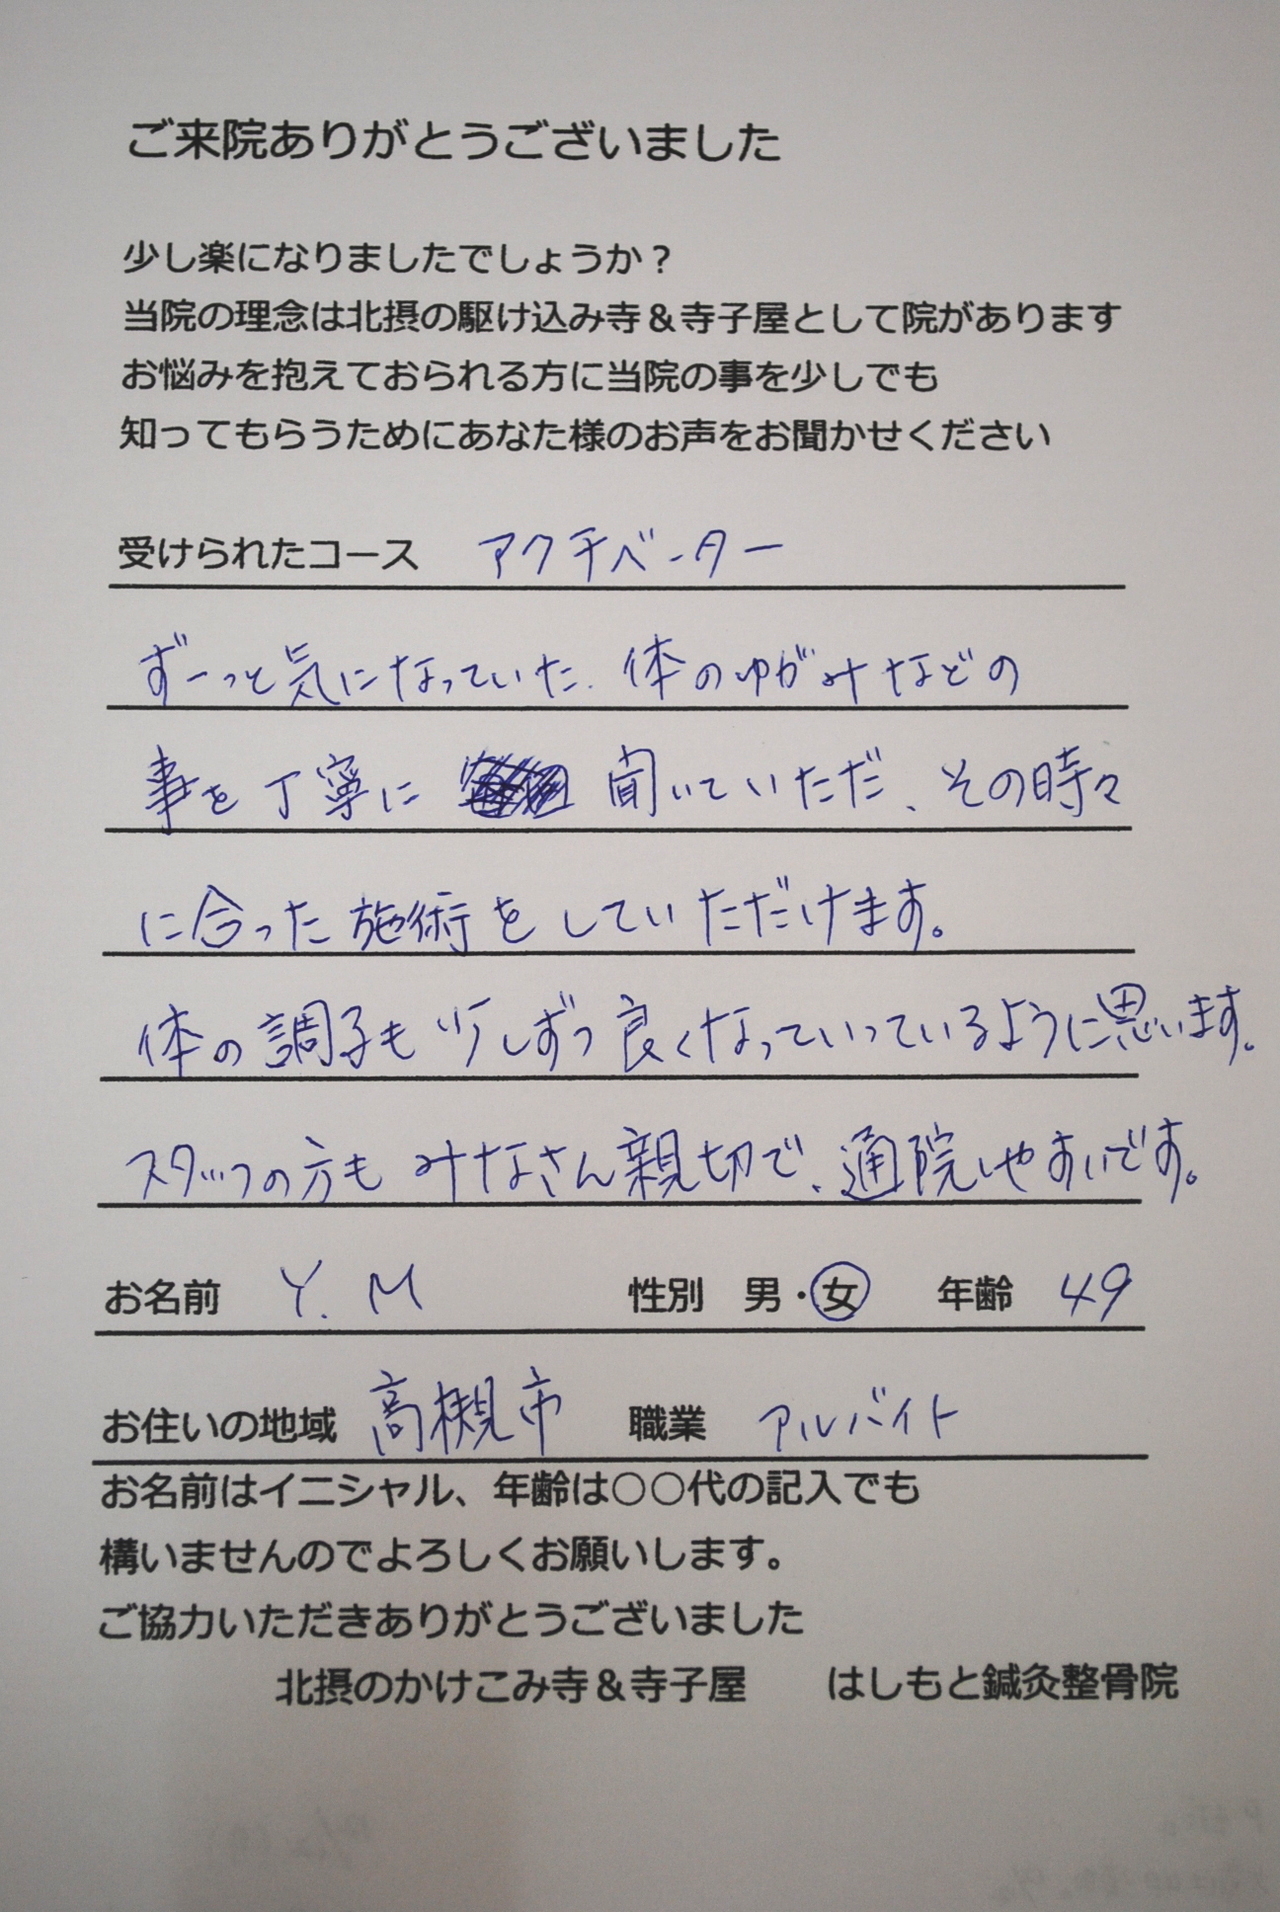 ご来院ありがとうございました
少し楽になりましたでしょうか？
当院の理念は北摂の駆け込み寺＆寺子屋として院があります
お悩みを抱えておられる方に当院の事を少しでも
知ってもらうためにあなた様のお声をお聞かせください
受けられたコース アクチベーター
ずーっと気になっていた、体のゆがみなどの
事を丁寧に 聞いていただ、その時々
に合った施術をしていただけます。
体の調子も少しずつ良くなっていっているように思います。
スタッフの方もみなさん親切で、通院しやすいです。
お名前 Y.M 性別 男・女 年齢 49
お住いの地域 高槻市 職業 アルバイト
お名前はイニシャル、年齢は○○代の記入でも
構いませんのでよろしくお願いします。
ご協力いただきありがとうございました
北摂のかけこみ寺＆寺子屋 はしもと鍼灸整骨院